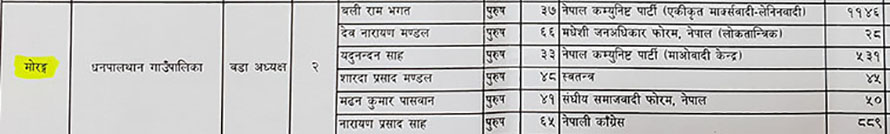 बली राम भगत पुरुष ३७ नेपाल कम्युनिष्ट पार्टी (एकीकृत मार्क्सवादी-लेनिनवादी) ११४६
देव नारायण मण्डल पुरुष ६६ मधेशी जनअधिकार फोरम, नेपाल (लोकतान्त्रिक) २८
यदुनन्दन साह पुरुष ३३ नेपाल कम्युनिष्ट पार्टी (माओवादी केन्द्र) ५३१
मोरङ्ग धनपालथान गाउँपालिका वडा अध्यक्ष २
शारदा प्रसाद मण्डल पुरुष ४८ स्वतन्त्र ४५
मदन कुमार पासवान पुरुष ४१ संघीय समाजवादी फोरम, नेपाल ५०
नारायण प्रसाद साह पुरुष ६५ नेपाली काँग्रेस ८८९